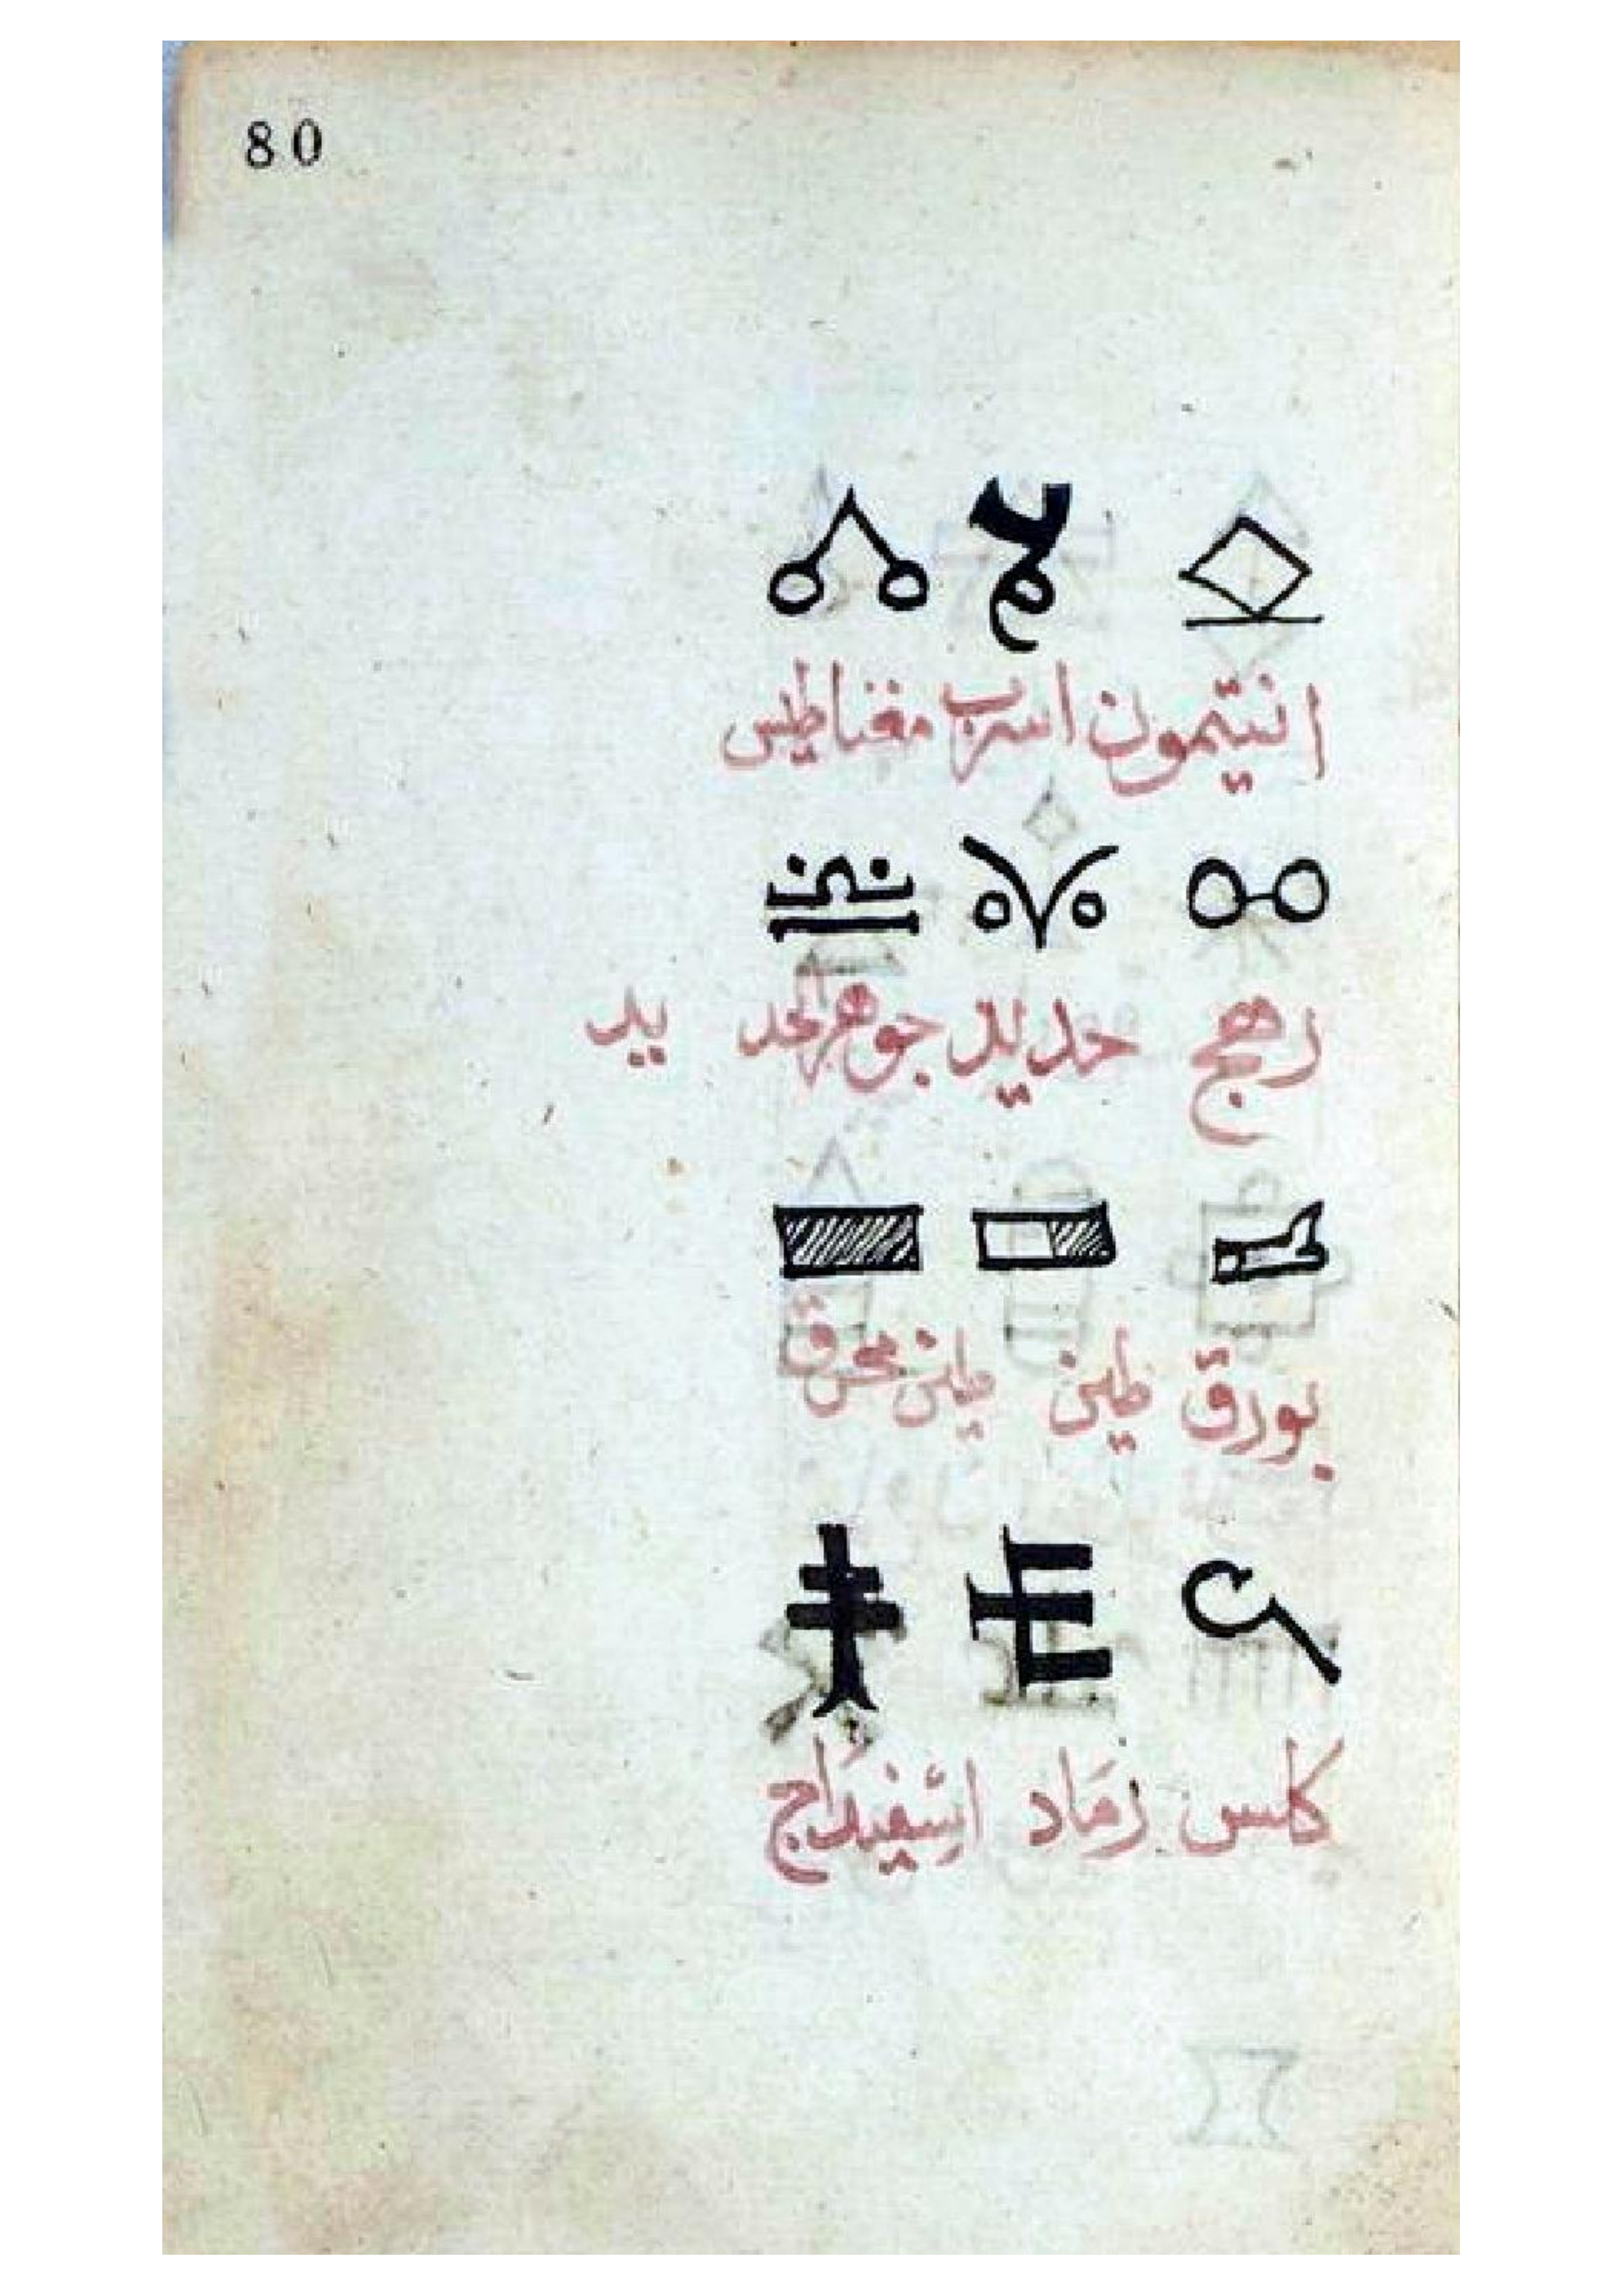 80
انتيمون اسرب مغناطيس
رهج حديد جوهر الحد يد
بورق طين طين محرق
كلس رَمَاد اسفيداج